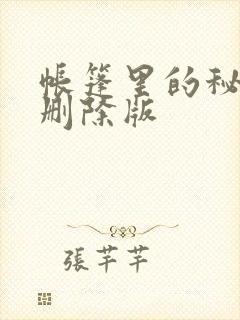 帳篷里的秘
删除版
張芊芊